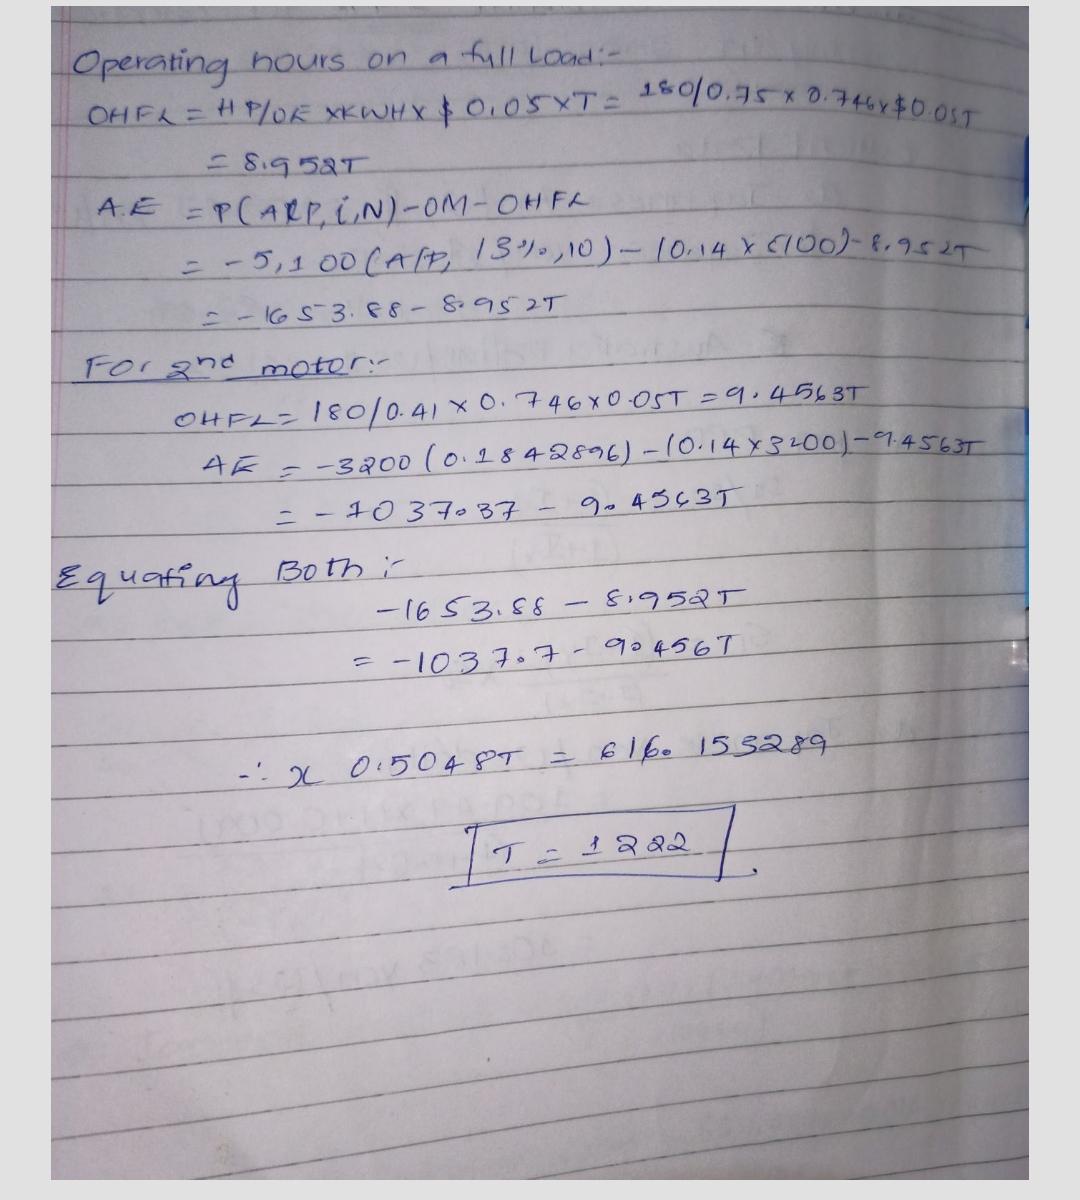 Operating hours on a full Load:-
OHFL = HP/OE XKWHX $ 0.05XT = 180/0.75 x 0.746x$0.05T
= 8.952T
A.E = P(ARP, i,N)-OM-OHFL
= -5,100(A/P, 13%,10)-(0.14 x 5100)-8.952T
= -1653.88-8.952T
For 2nd motor:-
OHFL= 180/0.41 x 0.746x0.05T = 9.4563T
AE = -3200(0.1842896)-(0.14x3200)-9.4563T
= -1037.37 - 9.4563T
Equating Both :-
-1653.88 - 8.952T
= -1037.7 - 9.456T
∴ x 0.5048T = 616.153289
T = 1222.